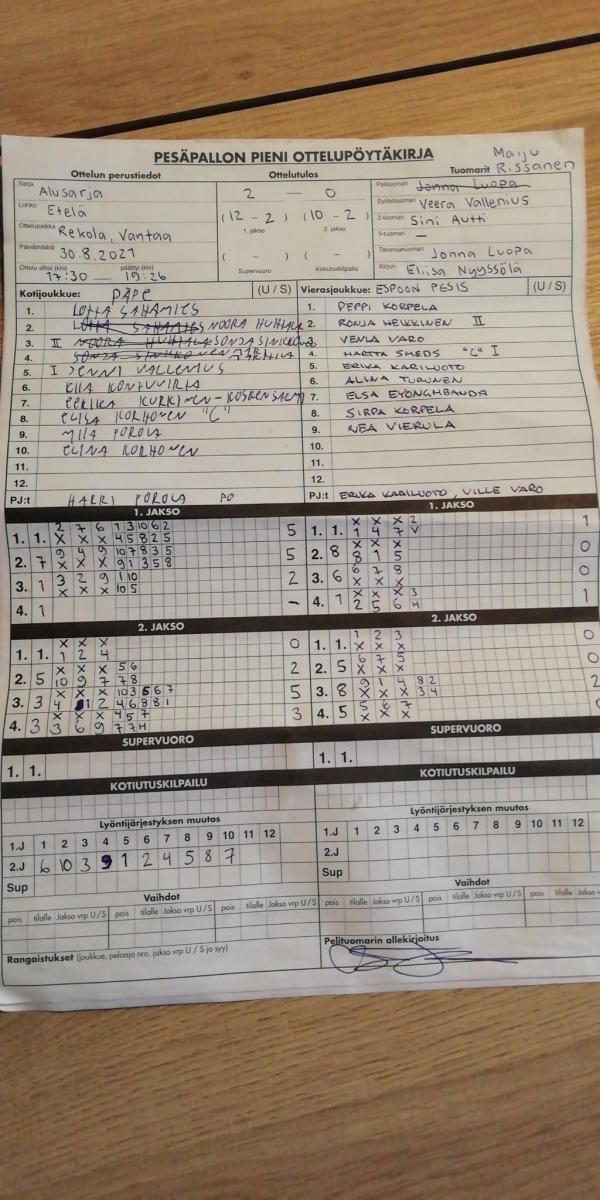 PESÄPALLON PIENI OTTELUPÖYTÄKIRJA
Maiju Rissanen
Ottelun perustiedot
Ottelutulos
Tuomarit
Sarja Alusarja
2 — 0
Pelituomari Jonna Luopa
Lohko Etelä
(12 - 2) (10 - 2)
Syöttötuomari Veera Vallenius
1. jakso 2. jakso
Ottelupaikka Rekola, Vantaa
2-tuomari Sini Autti
Päivämäärä 30.8.2021
( - ) ( - )
3-tuomari —
Supervuoro Kotiutuskilpailu
Takarajatuomari Jonna Luopa
Ottelu alkoi (klo) 17:30 päättyi (klo) 19:26
Kirjuri Eliisa Nyyssölä
Kotijoukkue: PÄPE (U / S)
1. LOTTA SAHAMIES
2. NOORA HUHTALA
3. II
4.
5. I JENNI VALLENIUS
6. KIIA KONTUVIRTA
7. EERIKA KURKINEN-KOSKENSALMI
8. ELISA KORHONEN "C"
9. MIIA POROLA
10. ELINA KORHONEN
11.
12.
PJ:t HARRI POROLA PO
Vierasjoukkue: ESPOON PESIS (U / S)
1. PEPPI KORPELA
2. RONJA HEIKKINEN II
3. VENLA VARO
4. MARTTA SMEDS "C" I
5. ERIKA KARILUOTO
6. ALINA TURUNEN
7. ELSA EYONGHBANDA
8. SIRPA KORPELA
9. NEA VIERULA
10.
11.
12.
PJ:t ERIKA KARILUOTO, VILLE VARO
1. JAKSO
2 7 6 1 3 10 6 2
1. 1. X X X 4 5 8 2 5 5
9 4 9 10 7 8 3 5
2. 7 X X X 9 1 3 5 8 5
3 2 9 1 10
3. 1 X X X 10 5 2
4. 1 –
1. JAKSO
X X X 2
1. 1. 1 4 7 V 1
X X X
2. 8 8 1 5 0
6 7 8
3. 6 X X X 0
X X X 3
4. 1 2 5 6 H 1
2. JAKSO
X X X
1. 1. 1 2 4 0
X X X 5 6
2. 5 10 9 7 7 8 2
X X X 10 3 5 6 7
3. 3 4 1 2 4 6 8 8 1 5
X X X 4 5 7
4. 3 3 6 9 7 7 H 3
2. JAKSO
1 2 3
1. 1. X X X 0
6 7 5
2. 5 X X X 0
9 1 4 8 2
3. 8 X X X 3 4 2
5 6 7
4. 5 X X X
SUPERVUORO
1. 1.
KOTIUTUSKILPAILU
Lyöntijärjestyksen muutos
1.J 1 2 3 4 5 6 7 8 9 10 11 12
2.J 6 10 3 9 1 2 4 5 8 7
Sup
Vaihdot
pois tilalle Jakso vrp U / S pois tilalle Jakso vrp U / S pois tilalle Jakso vrp U / S
Rangaistukset (joukkue, pelaaja nro, jakso vrp U / S ja syy)
SUPERVUORO
1. 1.
KOTIUTUSKILPAILU
Lyöntijärjestyksen muutos
1.J 1 2 3 4 5 6 7 8 9 10 11 12
2.J
Sup
Vaihdot
pois tilalle Jakso vrp U / S pois tilalle Jakso vrp U / S pois tilalle Jakso vrp
Pelituomarin allekirjoitus